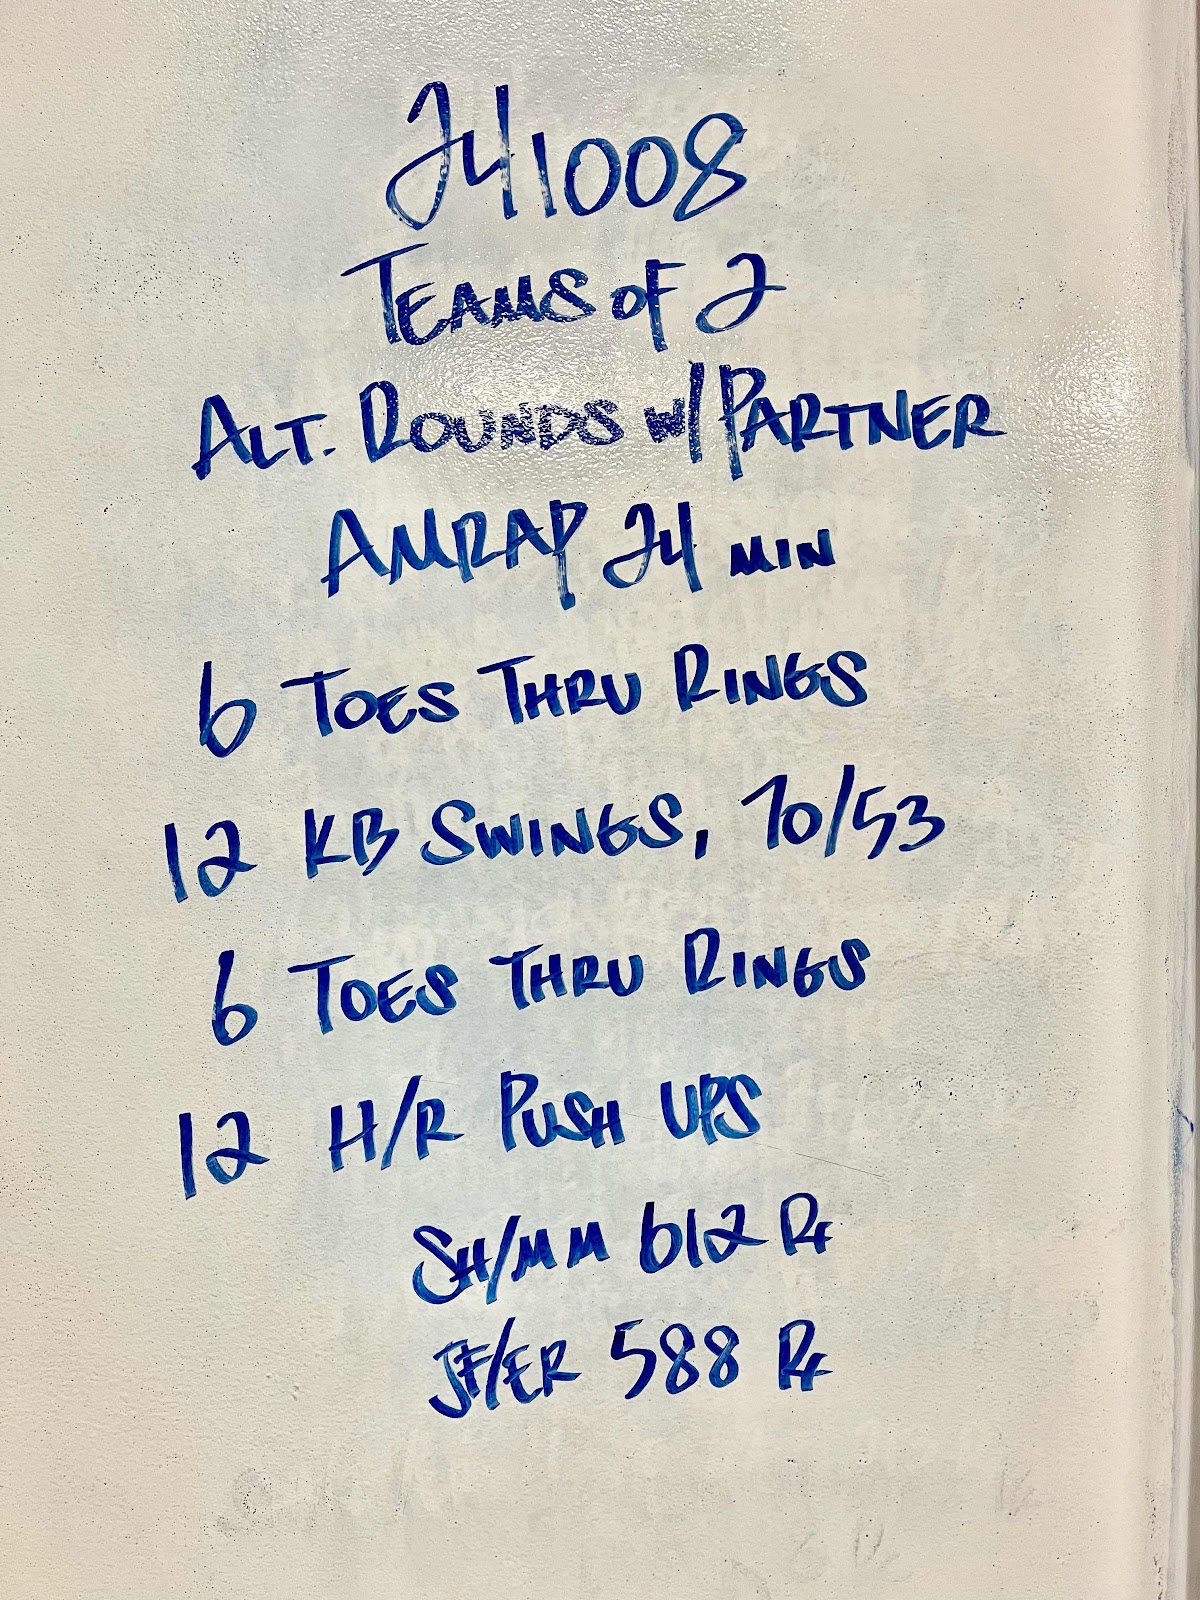 241008
TEAMS OF 2
ALT. ROUNDS W/ PARTNER
AMRAP 24 MIN
6 TOES THRU RINGS
12 KB SWINGS, 70/53
6 TOES THRU RINGS
12 H/R PUSH UPS
SH/MM 612 Rx
JF/ER 588 Rx